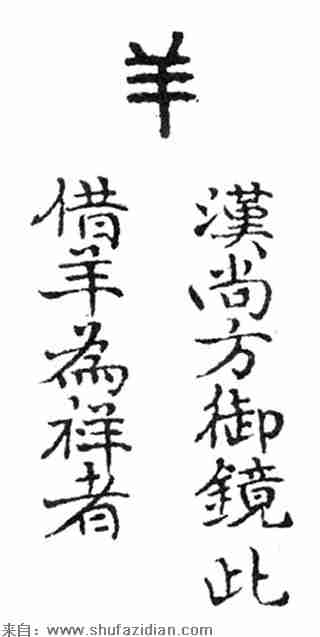 羊
漢尚方御鏡此
借羊為祥者
来自：www.shufazidian.com